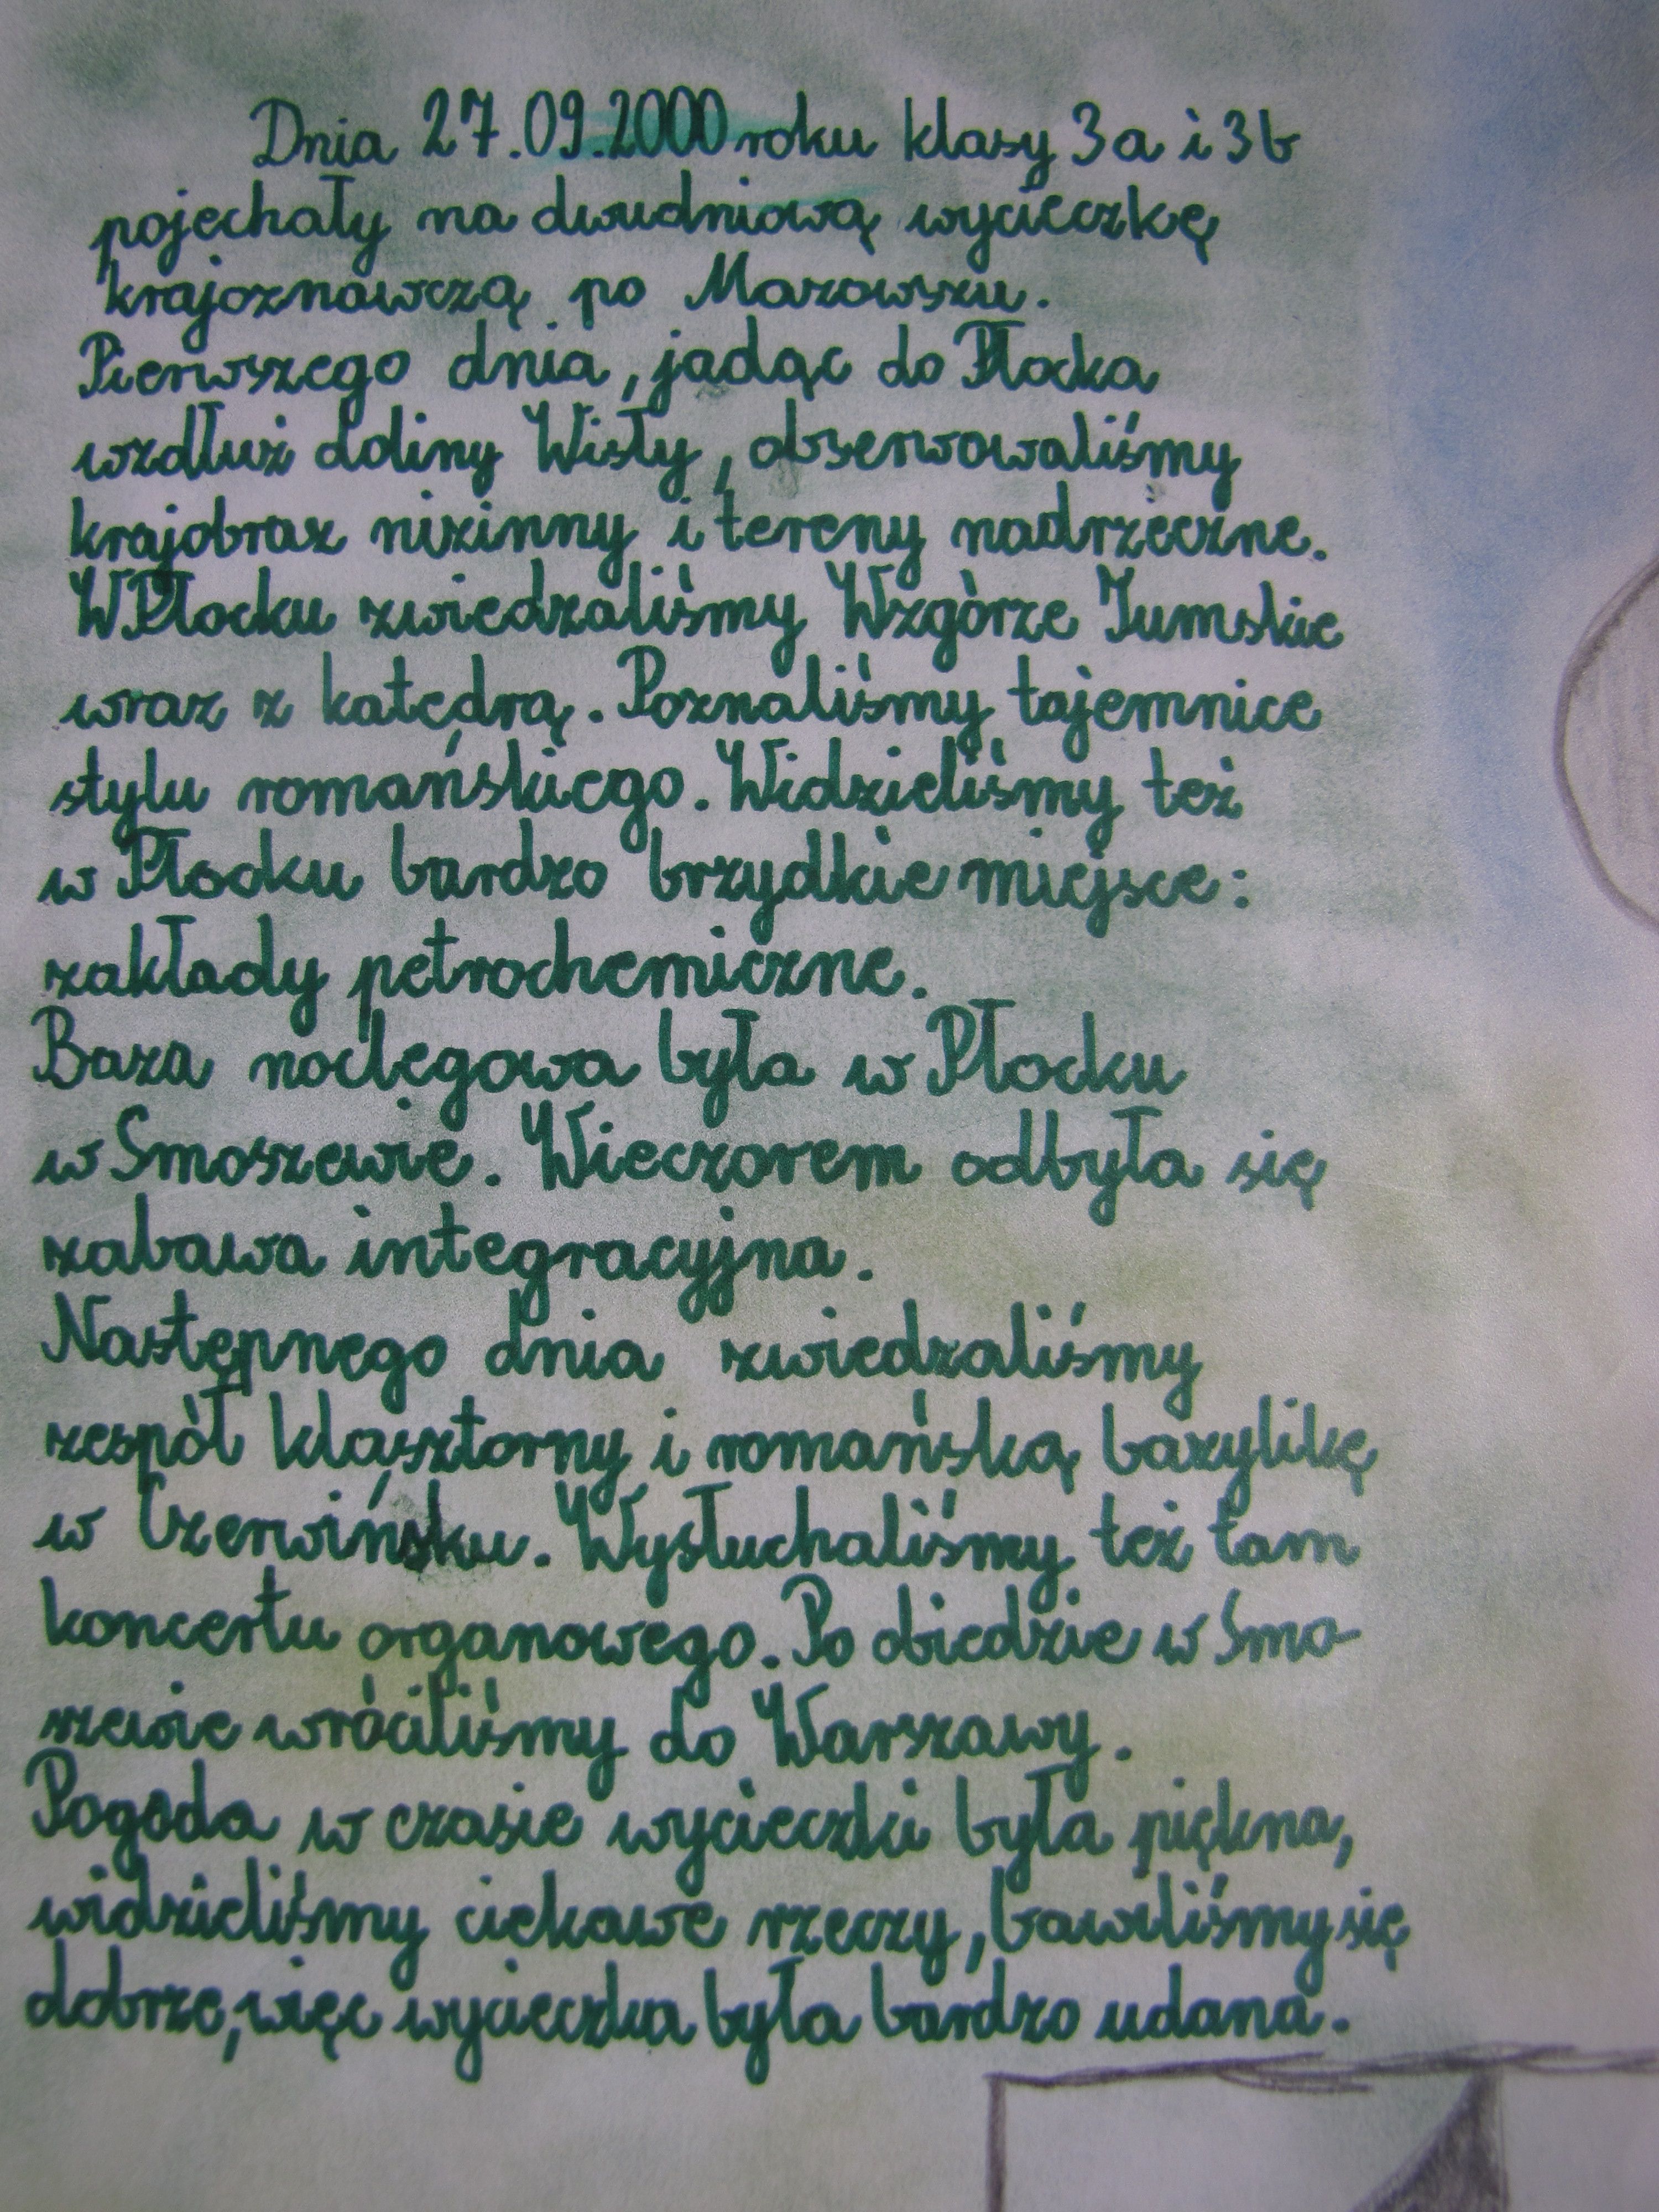 Dnia 27.09.2000 roku klasy 3a i 3b
pojechały na dwudniową wycieczkę
krajoznawczą po Mazowszu.
Pierwszego dnia, jadąc do Płocka
wzdłuż doliny Wisły, obserwowaliśmy
krajobraz nizinny i tereny nadrzeczne.
W Płocku zwiedzaliśmy Wzgórze Tumskie
wraz z katedrą. Poznaliśmy tajemnice
stylu romańskiego. Widzieliśmy też
w Płocku bardzo brzydkie miejsce:
zakłady petrochemiczne.
Baza noclegowa była w Płocku
w Smoszewie. Wieczorem odbyła się
zabawa integracyjna.
Następnego dnia zwiedzaliśmy
zespół klasztorny i romańską bazylikę
w Czerwińsku. Wysłuchaliśmy też tam
koncertu organowego. Po obiedzie w Smo-
szewie wróciliśmy do Warszawy.
Pogoda w czasie wycieczki była piękna,
widzieliśmy ciekawe rzeczy, bawiliśmy się
dobrze, więc wycieczka była bardzo udana.